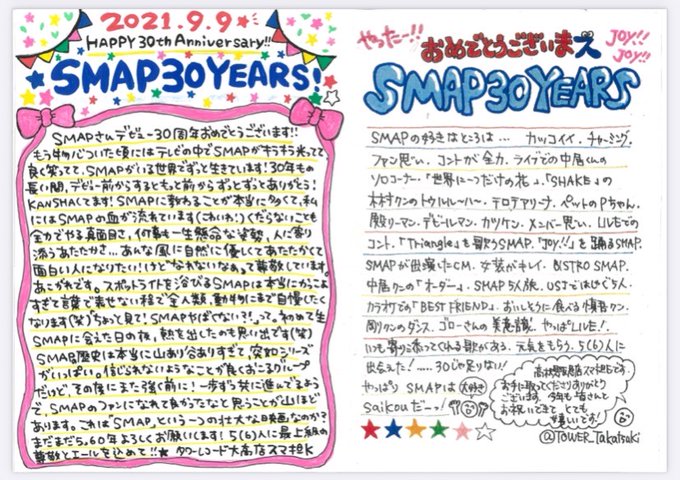 2021.9.9
HAPPY 30th Anniversary!!
SMAP30YEARS!
SMAPさんデビュー30周年おめでとうございます!!
もう物心ついた頃にはテレビの中でSMAPがキラキラ光ってて
良く笑ってて、SMAPがいる世界でずっと生きています!30年もの
長い間、デビュー前からするともっと前からずっとずっとありがとう!
KANSHAしてます!SMAPに教わることが本当に多くて、私
にはSMAPの血が流れています(こわいわ!)くだらないことも
全力でやる真面目さ、何事も一生懸命な姿勢、人に寄り
添うあたたかさ…あんな風に自然に優しくてあたたかくて
面白い人になりたい!けど"なれないなぁ"って尊敬しています。
あこがれです。スポットライトを浴びるSMAPは本当にかっこよ
すぎて言葉で表せない程で全人類、動物にまで自慢したく
なります(笑)"ちょっと見て!SMAPやばくない?!"って。初めて生
SMAPに会えた日の夜、熱を出したのも思い出です(笑)
SMAP歴史は本当に山あり谷ありすぎて、突如シリーズ
がいっぱい。信じられないようなことが良くおこるグループ
だけど、その度にまた強く前に!一歩ずつ共に進んでるよう
で、SMAPのファンになれて良かったなと思うことが山ほど
あります。これはSMAPという一つの壮大な映画なのか?
まだまだ5.60年よろしくお願いします!5(6)人に最上級の
尊敬とエールを込めて!!★ タワーレコード大高店スマ担K
やったー!!
おめでとうございまズ
JOY!!
JOY!!
SMAP30YEARS
SMAPの好きなところは… カッコイイ、チャーミング、
ファン思い、コントが全力、ライブでの中居くんの
ソロコーナー、「世界に一つだけの花」、「SHAKE」の
木村クンのトゥルル〜ハ〜、テロテアリーナ、ペットのPちゃん、
殿リーマン、デビールマン、カツケン、メンバー思い、LIVEでの
コント、「Triangle」を歌うSMAP、「Joy!!」を踊るSMAP、
SMAPが出演したCM、女装がキレイ、BISTRO SMAP、
中居クンの「オーダー」、SMAP 5人旅、USJではしゃぐ5人、
カラオケでの「BEST FRIEND」、おいしそうに食べる慎吾クン、
剛クンのダンス、ゴローさんの美意識、やっぱLIVE!、
いつも寄り添ってくれる歌がある、元気をもらう、5(6)人に
出会えた!……30じゃ足りない!
やっぱり SMAPは 大好き
saikouだーッ!
お手に取ってくださりありがとう
ございます。今年も皆さんと
お祝いできて とても
嬉しいです!
@TOWER_Takatsuki